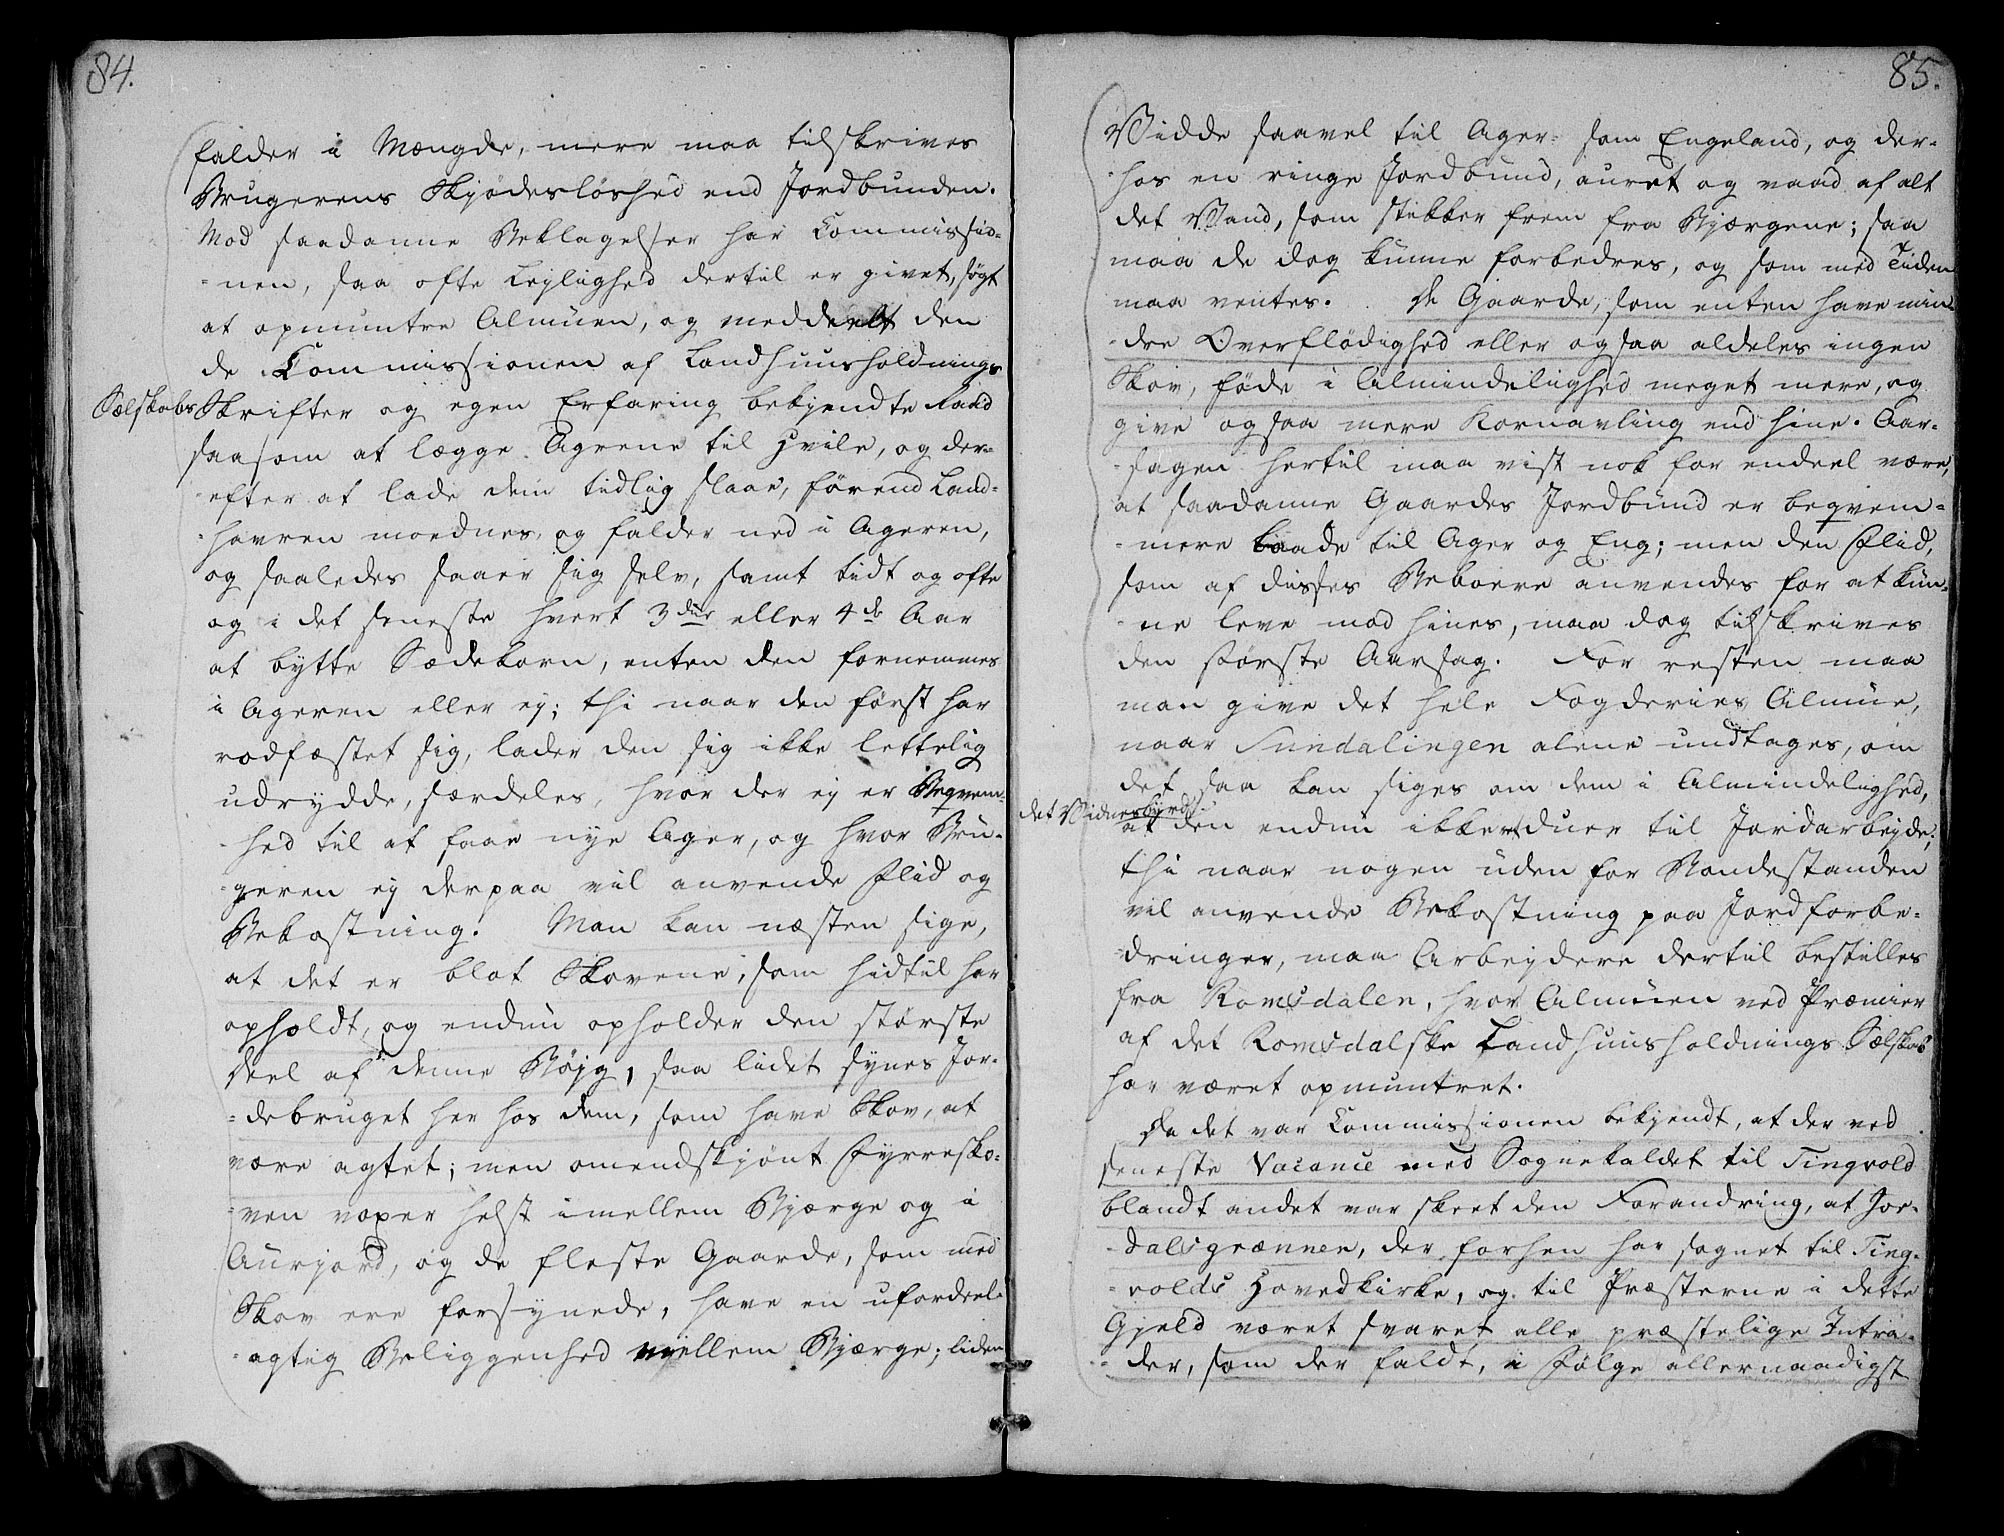 84.
falder i Mængde, mere maa tilskrives
Brugerens Skjødesløshed end Jordbunden.
Mod saadanne Beklagelser har Commissio-
-nen, saa ofte Lejlighed dertil er givet, søgt
at opmuntre Almuen, og meddeelt den
de Commissionen af Landhuusholdnings
Sælskabs Skrifter og egen Erfaring bekjendte Raad
saasom at lægge Agrene til Hvile, og der-
-efter at lade dem tidlig slaae, førend Land-
-havren modnes og falder ned i Ageren,
og saaledes saaer sig selv, samt tidt og ofte
og i det seneste hvert 3die eller 4de Aar
at bytte Sædekorn, enten den fornemmes
i Ageren eller ej; thi naar den først har
rodfæstet sig, lader den sig ikke lettelig
udrydde, særdeles, hvor der ej er Beqvem-
-hed til at faae nye Ager, og hvor Bru-
-geren ej derpaa vil anvende Flid og
Bekostning. Man kan næsten sige,
at det er blot Skovene, som hidtil har
opholdt, og endnu opholder den største
Deel af denne Bøjg, saa lidet synes Jor-
-debruget her hos dem, som have Skov, at
være agtet; men omendskjønt Fyrresko-
-ven voxer helst imellem Bjærge og i
Aurjord, og de fleste Gaarde, som med
Skov ere forsynede, have en ufordeel-
-agtig Beliggenhed mellem Bjærge; liden
85.
Vidde saavel til Ager- som Engeland, og der-
-hos en ringe Jordbund, auret og vaad af alt
det Vand, som stikker frem fra Bjærgene; saa
maa de dog kunne forbedres, og som med Tiden
maa ventes. De Gaarde, som enten have min-
-dre Overflødighed eller ogsaa aldeles ingen
Skov, føde i Almindelighed meget mere, og
give ogsaa mere Kornavling end hine. Aar-
-sagen hertil maa vist nok for endeel være,
at saadanne Gaardes Jordbund er beqvem-
-mere baade til Ager og Eng; men den Flid,
som af disses Beboere anvendes for at kun-
-ne leve mod hines, maa dog tilskrives
den største Aarsag. For resten maa
man give det hele Fogderies Almue,
naar Sundalingen alene undtages, om
det saa kan siges om dem i Almindelighed,
det Vidnesbyrd
at den endnu ikke duer til Jordarbejde;
thi naar nogen uden for Bondestanden
vil anvende Bekostning paa Jordforbe-
-dringer, maa Arbejdere dertil bestilles
fra Romsdalen, hvor Almuen ved Præmier
af det Romsdalske Landhuusholdnings Sælskab
har været opmuntret.
Da det var Commissionen bekjendt, at der ved
seneste Vacance med Sognekaldet til Tingvold
blandt andet var skeet den Forandring, at Jor-
-dalsgrænnen, der forhen har sognet til Ting-
-volds Hovedkirke, og til Præsterne i dette
Gjeld været svaret alle præstelige Intra-
-der, som der faldt, i Følge allernaadigst